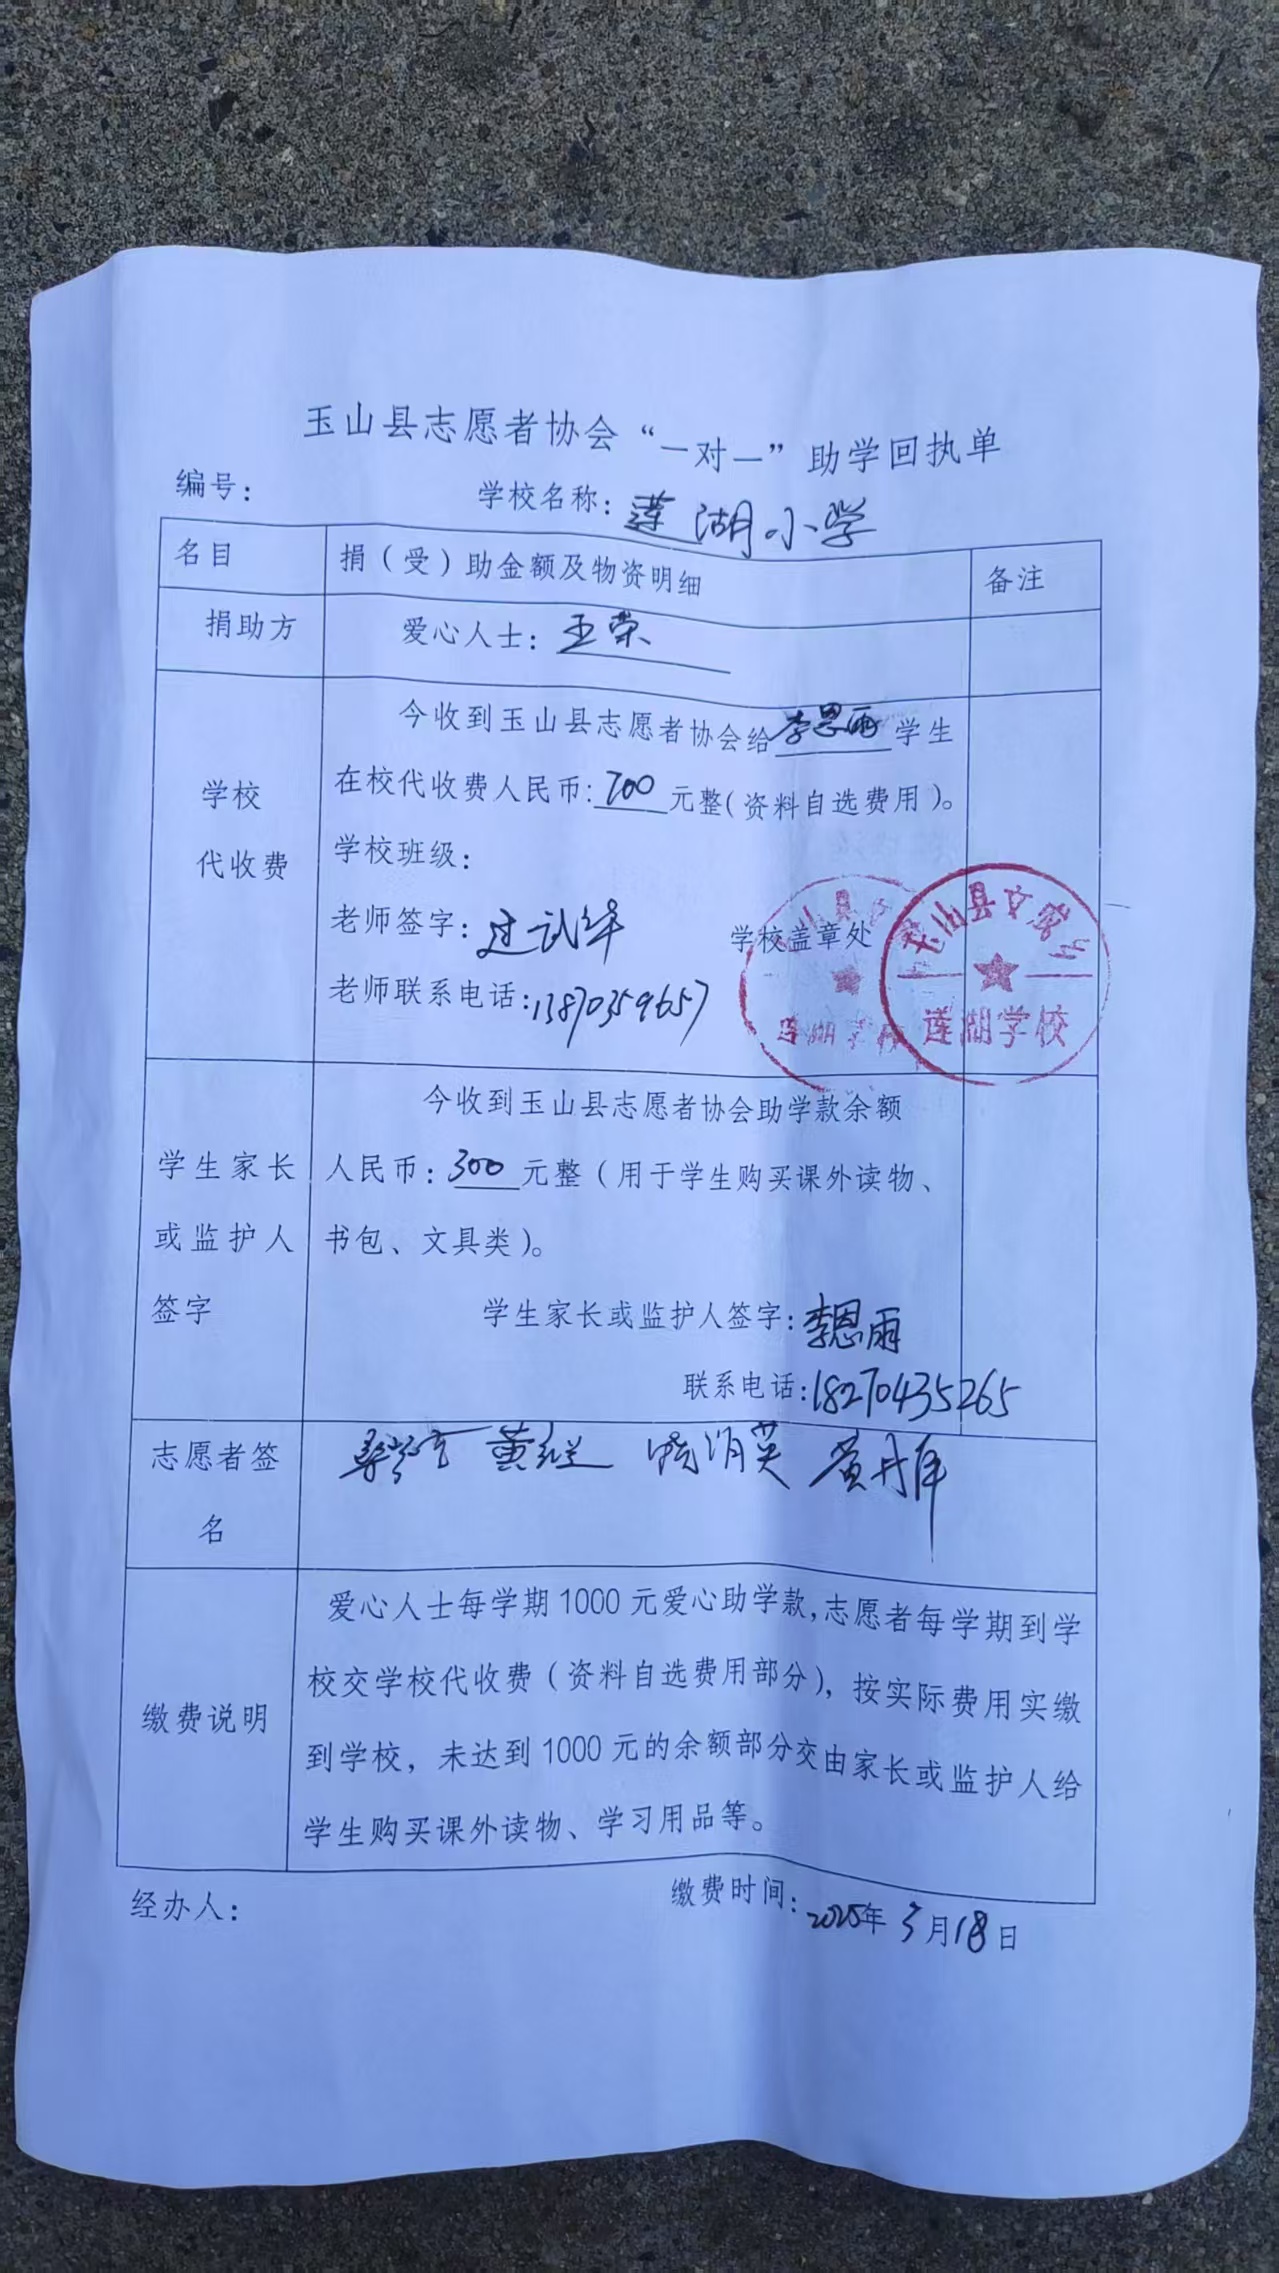 玉山县志愿者协会“一对一”助学回执单
编号： 学校名称：莲湖小学
名目 捐（受）助金额及物资明细 备注
捐助方 爱心人士：王荣
学校代收费
今收到玉山县志愿者协会给李思雨学生
在校代收费人民币：700元整（资料自选费用）。
学校班级：
老师签字：过武华
老师联系电话：13870359657
学校盖章处
玉山县文成乡
莲湖学校
学生家长或监护人签字
今收到玉山县志愿者协会助学款余额
人民币：300元整（用于学生购买课外读物、
书包、文具类）。
学生家长或监护人签字：李思雨
联系电话：18270435265
志愿者签名
缴费说明
爱心人士每学期1000元爱心助学款，志愿者每学期到学
校交学校代收费（资料自选费用部分），按实际费用实缴
到学校，未达到1000元的余额部分交由家长或监护人给
学生购买课外读物、学习用品等。
经办人： 缴费时间：2025年3月18日